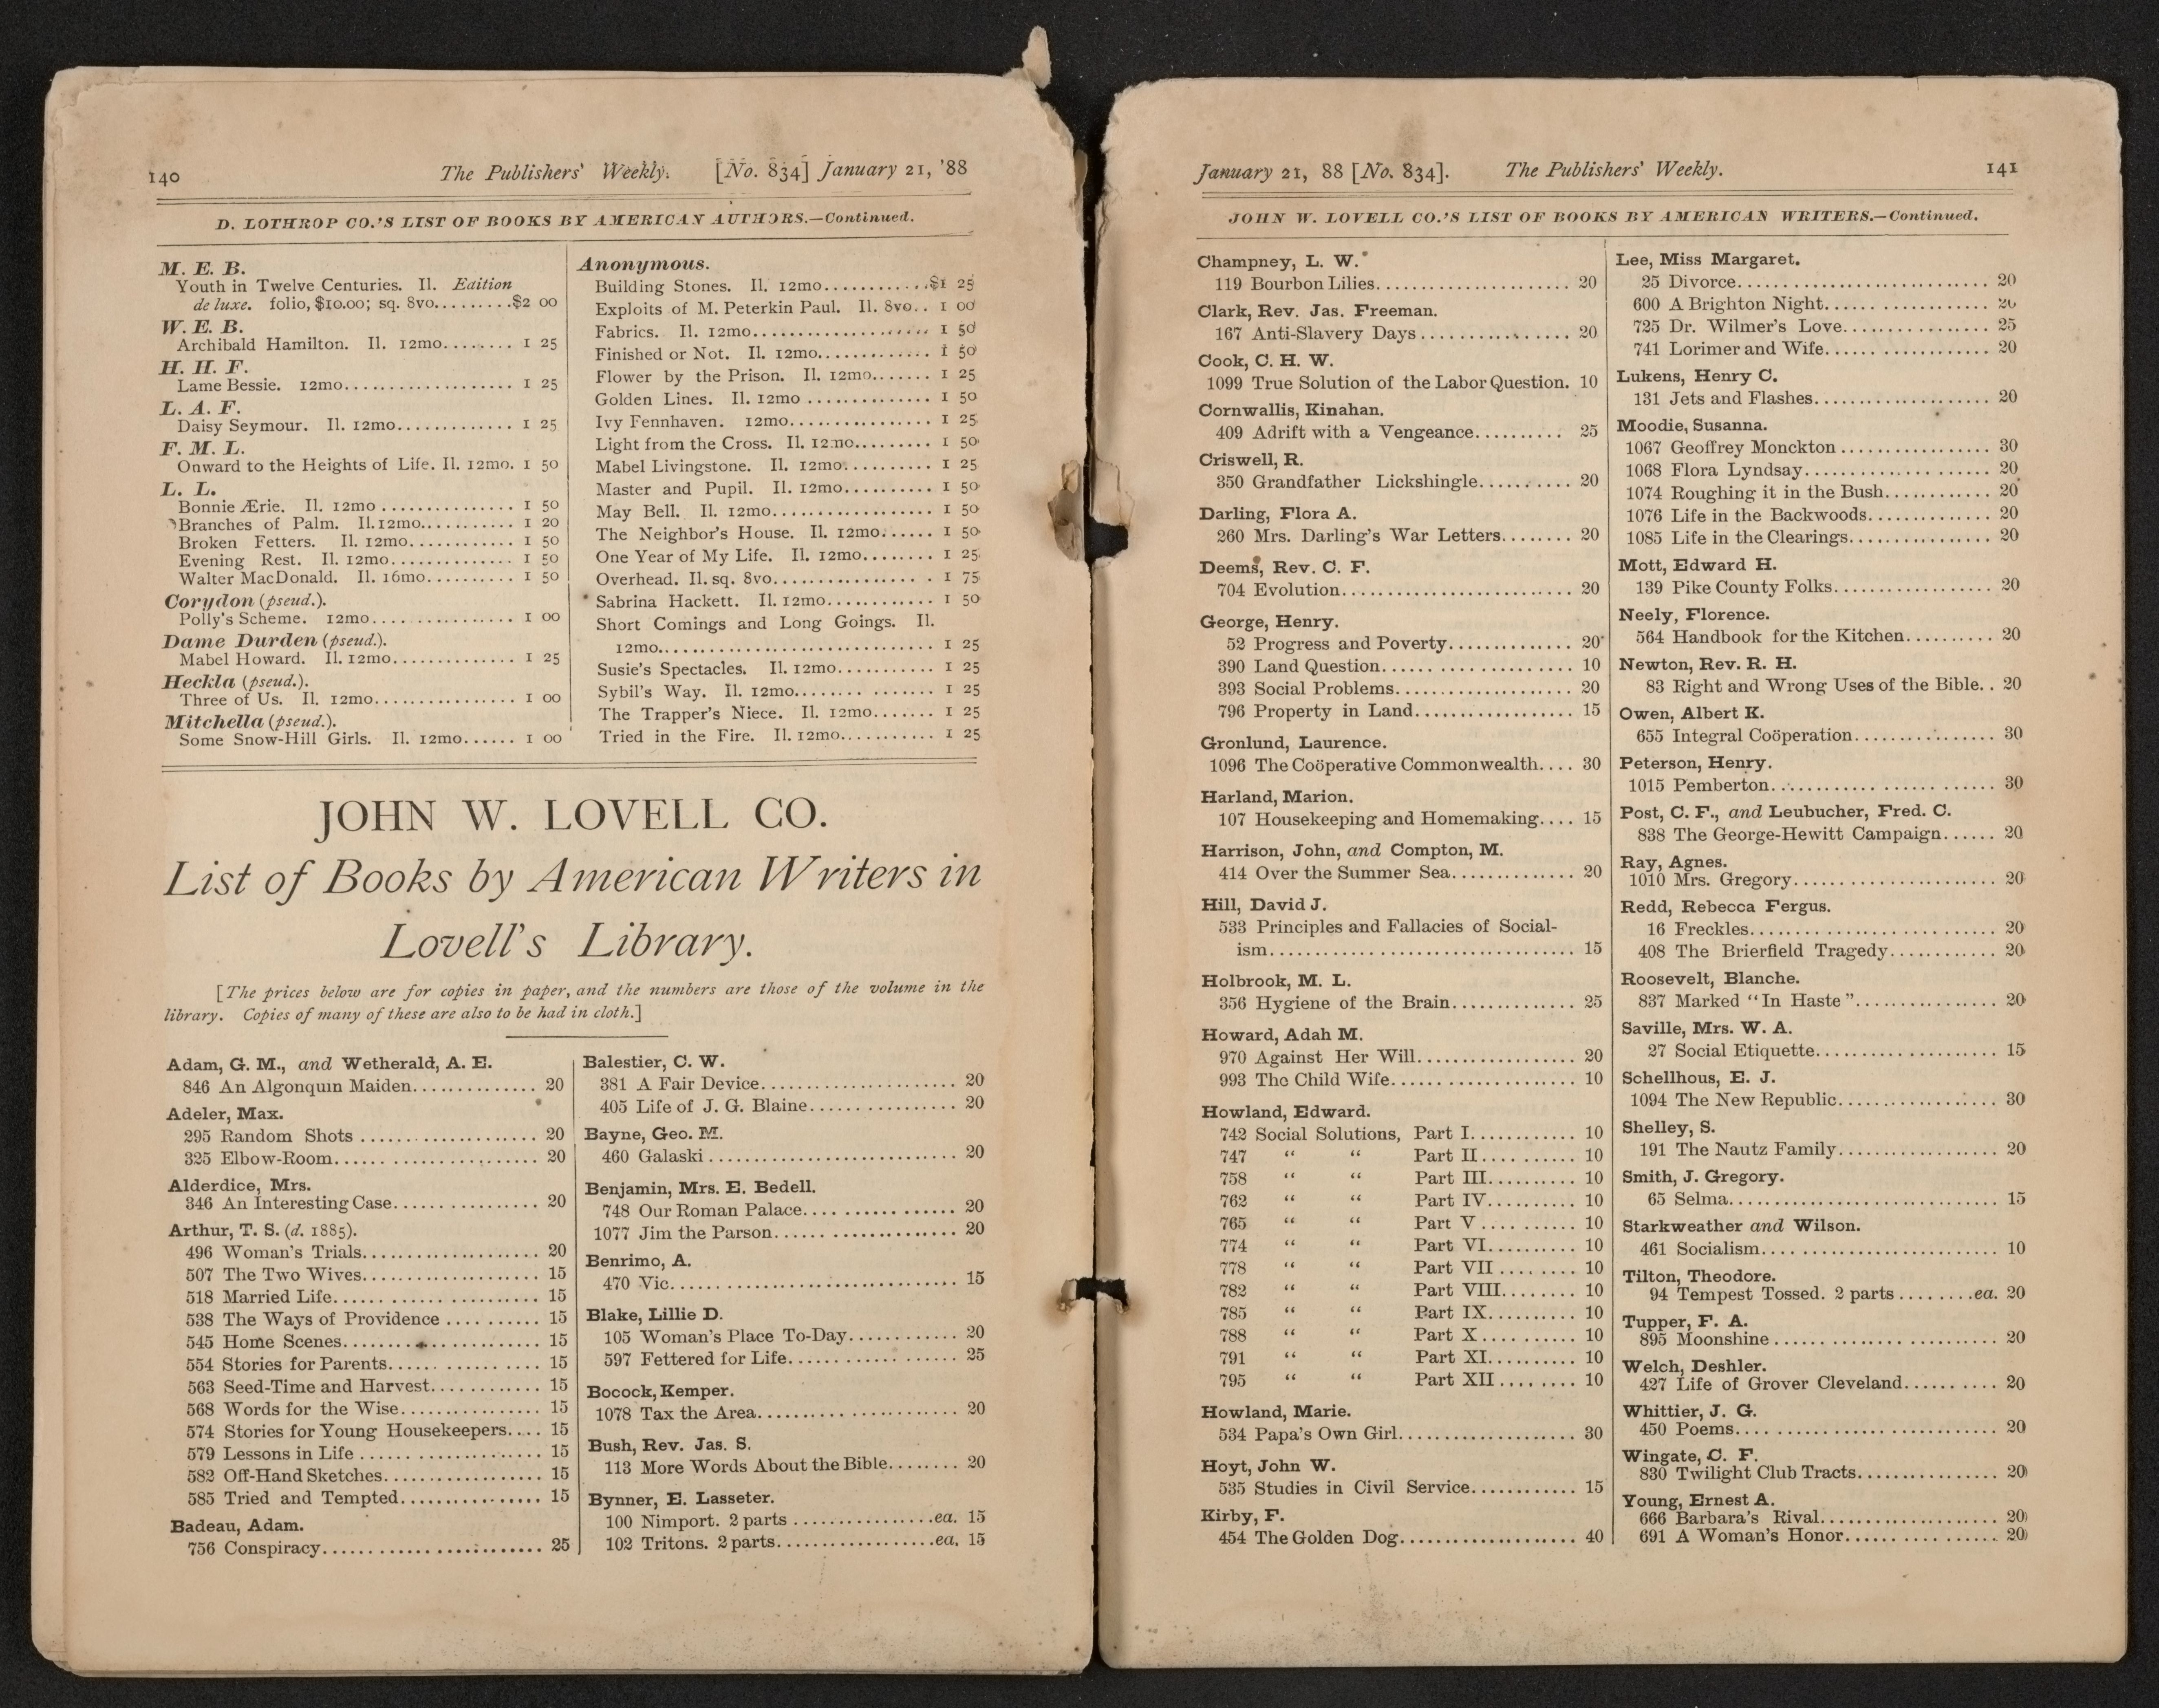 140 The Publishers' Weekly. [No. 834] January 21, '88
D. LOTHROP CO.'S LIST OF BOOKS BY AMERICAN AUTHORS.—Continued.
M. E. B.
Youth in Twelve Centuries. Il. Edition
de luxe. folio, $10.00; sq. 8vo.........$2 00
W. E. B.
Archibald Hamilton. Il. 12mo........ 1 25
H. H. F.
Lame Bessie. 12mo................... 1 25
L. A. F.
Daisy Seymour. Il. 12mo............. 1 25
F. M. L.
Onward to the Heights of Life. Il. 12mo. 1 50
L. L.
Bonnie Ærie. Il. 12mo ............... 1 50
Branches of Palm. Il. 12mo........... 1 20
Broken Fetters. Il. 12mo............ 1 50
Evening Rest. Il. 12mo.............. 1 50
Walter MacDonald. Il. 16mo.......... 1 50
Corydon (pseud.).
Polly's Scheme. 12mo................ 1 00
Dame Durden (pseud.).
Mabel Howard. Il. 12mo.............. 1 25
Heckla (pseud.).
Three of Us. Il. 12mo................ 1 00
Mitchella (pseud.).
Some Snow-Hill Girls. Il. 12mo...... 1 00
Anonymous.
Building Stones. Il. 12mo............$1 25
Exploits of M. Peterkin Paul. Il. 8vo.. 1 00
Fabrics. Il. 12mo.................... 1 50
Finished or Not. Il. 12mo............. 1 50
Flower by the Prison. Il. 12mo....... 1 25
Golden Lines. Il. 12mo .............. 1 50
Ivy Fennhaven. 12mo................. 1 25
Light from the Cross. Il. 12mo......... 1 50
Mabel Livingstone. Il. 12mo.......... 1 25
Master and Pupil. Il. 12mo.......... 1 50
May Bell. Il. 12mo.................. 1 50
The Neighbor's House. Il. 12mo...... 1 50
One Year of My Life. Il. 12mo........ 1 25
Overhead. Il. sq. 8vo................. 1 75
Sabrina Hackett. Il. 12mo............ 1 50
Short Comings and Long Goings. Il.
12mo.............................. 1 25
Susie's Spectacles. Il. 12mo........... 1 25
Sybil's Way. Il. 12mo................ 1 25
The Trapper's Niece. Il. 12mo....... 1 25
Tried in the Fire. Il. 12mo........... 1 25
JOHN W. LOVELL CO.
List of Books by American Writers in
Lovell's Library.
[The prices below are for copies in paper, and the numbers are those of the volume in the
library. Copies of many of these are also to be had in cloth.]
Adam, G. M., and Wetherald, A. E.
846 An Algonquin Maiden............. 20
Adeler, Max.
295 Random Shots .................... 20
325 Elbow-Room...................... 20
Alderdice, Mrs.
346 An Interesting Case................ 20
Arthur, T. S. (d. 1885).
496 Woman's Trials................... 20
507 The Two Wives.................... 15
518 Married Life....................... 15
538 The Ways of Providence .......... 15
545 Home Scenes...................... 15
554 Stories for Parents................. 15
563 Seed-Time and Harvest............ 15
568 Words for the Wise............... 15
574 Stories for Young Housekeepers.... 15
579 Lessons in Life .................... 15
582 Off-Hand Sketches................. 15
585 Tried and Tempted................ 15
Badeau, Adam.
756 Conspiracy......................... 25
Balestier, C. W.
381 A Fair Device...................... 20
405 Life of J. G. Blaine................ 20
Bayne, Geo. M.
460 Galaski ............................ 20
Benjamin, Mrs. E. Bedell.
748 Our Roman Palace................. 20
1077 Jim the Parson.................... 20
Benrimo, A.
470 Vic................................. 15
Blake, Lillie D.
105 Woman's Place To-Day............ 20
597 Fettered for Life................... 25
Bocock, Kemper.
1078 Tax the Area...................... 20
Bush, Rev. Jas. S.
113 More Words About the Bible........ 20
Bynner, E. Lasseter.
100 Nimport. 2 parts ................ea. 15
102 Tritons. 2 parts..................ea. 15
January 21, 88 [No. 834]. The Publishers' Weekly. 141
JOHN W. LOVELL CO.'S LIST OF BOOKS BY AMERICAN WRITERS.—Continued.
Champney, L. W.
119 Bourbon Lilies..................... 20
Clark, Rev. Jas. Freeman.
167 Anti-Slavery Days ................. 20
Cook, C. H. W.
1099 True Solution of the Labor Question. 10
Cornwallis, Kinahan.
409 Adrift with a Vengeance.......... 25
Criswell, R.
350 Grandfather Lickshingle.......... 20
Darling, Flora A.
260 Mrs. Darling's War Letters........ 20
Deems, Rev. C. F.
704 Evolution.......................... 20
George, Henry.
52 Progress and Poverty.............. 20
390 Land Question..................... 10
393 Social Problems.................... 20
796 Property in Land.................. 15
Gronlund, Laurence.
1096 The Coöperative Commonwealth.... 30
Harland, Marion.
107 Housekeeping and Homemaking.... 15
Harrison, John, and Compton, M.
414 Over the Summer Sea.............. 20
Hill, David J.
533 Principles and Fallacies of Social-
ism................................ 15
Holbrook, M. L.
356 Hygiene of the Brain.............. 25
Howard, Adah M.
970 Against Her Will.................. 20
993 The Child Wife.................... 10
Howland, Edward.
742 Social Solutions, Part I............ 10
747 “ “ Part II........... 10
758 “ “ Part III.......... 10
762 “ “ Part IV.......... 10
765 “ “ Part V ........... 10
774 “ “ Part VI.......... 10
778 “ “ Part VII ......... 10
782 “ “ Part VIII........ 10
785 “ “ Part IX.......... 10
788 “ “ Part X........... 10
791 “ “ Part XI.......... 10
795 “ “ Part XII ........ 10
Howland, Marie.
534 Papa's Own Girl................... 30
Hoyt, John W.
535 Studies in Civil Service............ 15
Kirby, F.
454 The Golden Dog.................... 40
Lee, Miss Margaret.
25 Divorce............................ 20
600 A Brighton Night.................. 20
725 Dr. Wilmer's Love................ 25
741 Lorimer and Wife.................. 20
Lukens, Henry C.
131 Jets and Flashes................... 20
Moodie, Susanna.
1067 Geoffrey Monckton ................ 30
1068 Flora Lyndsay.................... 20
1074 Roughing it in the Bush............ 20
1076 Life in the Backwoods.............. 20
1085 Life in the Clearings............... 20
Mott, Edward H.
139 Pike County Folks.................. 20
Neely, Florence.
564 Handbook for the Kitchen.......... 20
Newton, Rev. R. H.
83 Right and Wrong Uses of the Bible.. 20
Owen, Albert K.
655 Integral Coöperation................ 30
Peterson, Henry.
1015 Pemberton......................... 30
Post, C. F., and Leubucher, Fred. C.
838 The George-Hewitt Campaign...... 20
Ray, Agnes.
1010 Mrs. Gregory...................... 20
Redd, Rebecca Fergus.
16 Freckles........................... 20
408 The Brierfield Tragedy............ 20
Roosevelt, Blanche.
837 Marked “In Haste”................ 20
Saville, Mrs. W. A.
27 Social Etiquette.................... 15
Schellhous, E. J.
1094 The New Republic.................. 30
Shelley, S.
191 The Nautz Family.................. 20
Smith, J. Gregory.
65 Selma.............................. 15
Starkweather and Wilson.
461 Socialism.......................... 10
Tilton, Theodore.
94 Tempest Tossed. 2 parts ........ea. 20
Tupper, F. A.
895 Moonshine ........................ 20
Welch, Deshler.
427 Life of Grover Cleveland.......... 20
Whittier, J. G.
450 Poems............................. 20
Wingate, C. F.
830 Twilight Club Tracts............... 20
Young, Ernest A.
666 Barbara's Rival.................... 20
691 A Woman's Honor................. 20